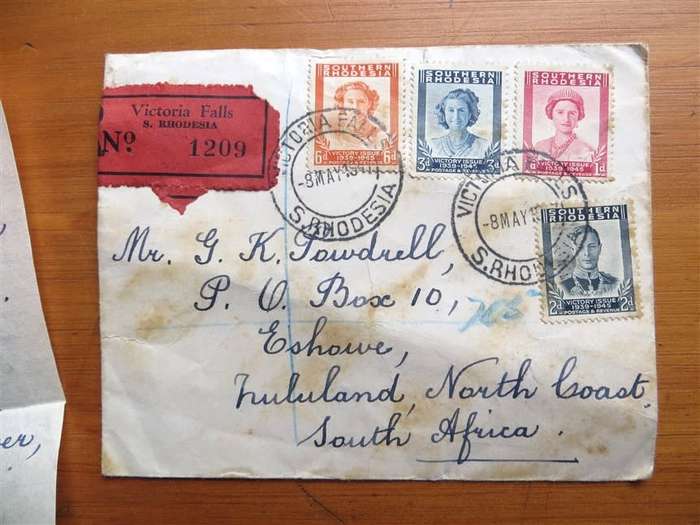 Victoria Falls
S. RHODESIA
Nº 1209
SOUTHERN
RHODESIA
6d 6d
VICTORY ISSUE
1939-1945
POSTAGE & REVENUE
SOUTHERN
RHODESIA
3d 3d
VICTORY ISSUE
1939-1945
POSTAGE & REVENUE
SOUTHERN
RHODESIA
1d
VICTORY ISSUE
1939-1945
POSTAGE & REVENUE
VICTORIA FALLS
-8 MAY 1947
S. RHODESIA
VICTORIA FALLS
-8 MAY
S. RHODESIA
SOUTHERN
RHODESIA
2d 2d
VICTORY ISSUE
1939-1945
POSTAGE & REVENUE
Mr. G. K. Powdrell,
P. O. Box 10,
Eshowe,
Zululand, North Coast
South Africa.